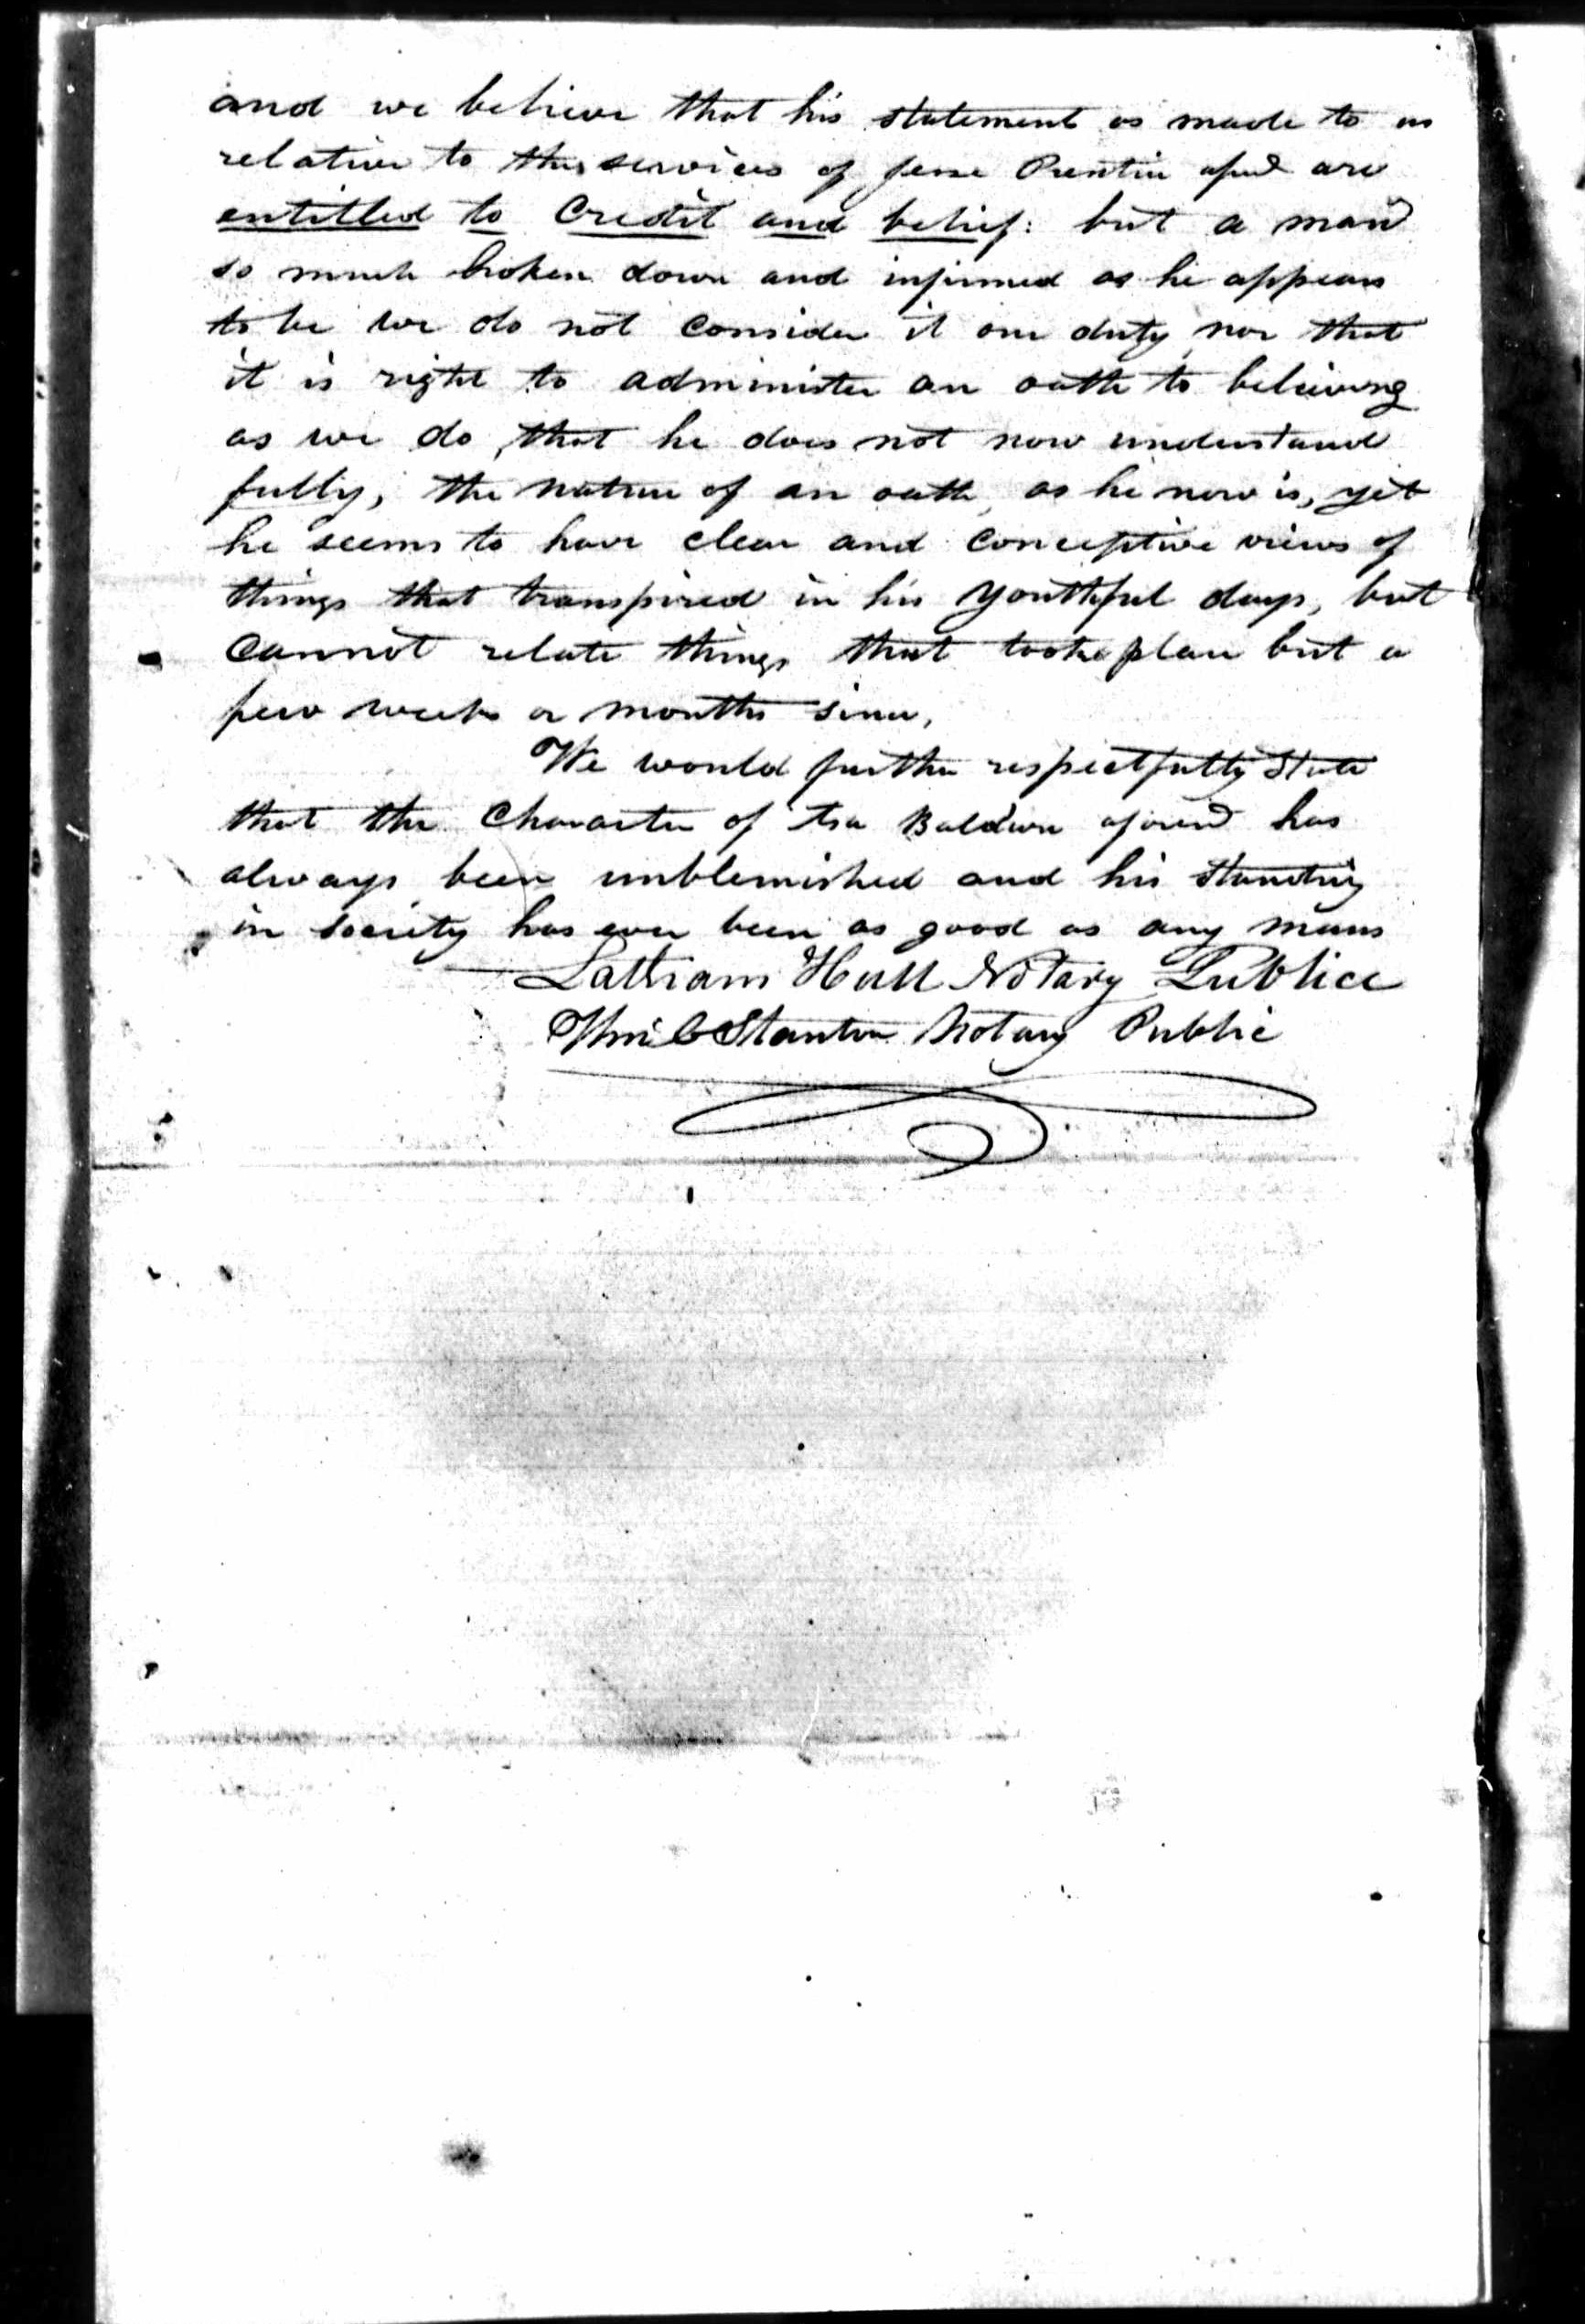 and we believe that his statement as made to us
relative to the services of Jesse Prentice afsd are
entitled to Credit and belief: but a man
so much broken down and infirmed as he appears
to be we do not consider it our duty nor that
it is right to administer an oath to believing
as we do, that he does not now understand
fully, the nature of an oath, as he now is, yet
he seems to have clear and conceptive views of
things that transpired in his youthful days, but
cannot relate things that took place but a
few weeks or months since,
We would further respectfully State
that the Character of Asa Baldwin aforesd has
always been unblemished and his standing
in society has ever been as good as any mans
Latham Hull Notary Publick
Stanton Notary Public